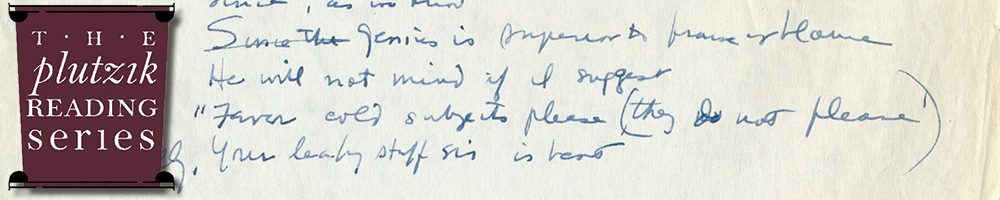 T·H·E
plutzik
READING
series
since, as
Since the genius is superior to praise or blame
He will not mind if I suggest
"Favor cold subjects please (they do not please)
Your leaky staff sir is bent